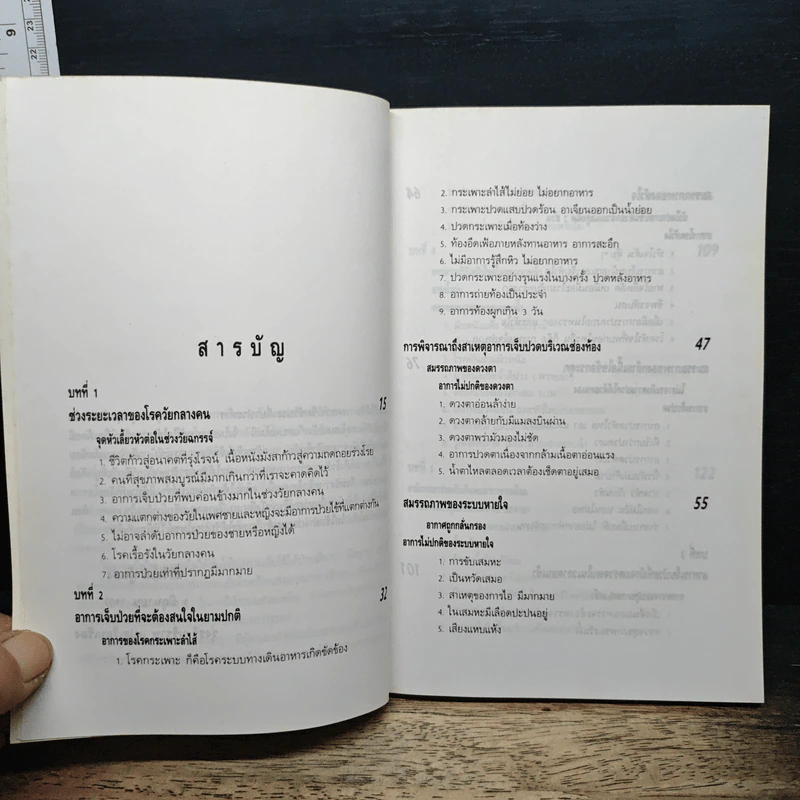 9
23
22
สารบัญ
บทที่ 1
ช่วงระยะเวลาของโรควัยกลางคน 15
จุดหัวเลี้ยวหัวต่อในช่วงวัยฉกรรจ์
1. ชีวิตก้าวสู่อนาคตที่รุ่งโรจน์ เนื้อหนังมังสาก้าวสู่ความถดถอยร่วงโรย
2. คนที่สุขภาพสมบูรณ์มีมากเกินกว่าที่เราจะคาดคิดไว้
3. อาการเจ็บป่วยที่พบค่อนข้างมากในช่วงวัยกลางคน
4. ความแตกต่างของวัยในเพศชายและหญิงจะมีอาการป่วยไข้ที่แตกต่างกัน
5. ไม่อาจลำดับอาการป่วยของชายหรือหญิงได้
6. โรคเรื้อรังในวัยกลางคน
7. อาการป่วยเท่าที่ปรากฏมีมากมาย
บทที่ 2 32
อาการเจ็บป่วยที่จะต้องสนใจในยามปกติ
อาการของโรคกระเพาะลำไส้
1. โรคกระเพาะ ก็คือโรคระบบทางเดินอาหารเกิดขัดข้อง
2. กระเพาะลำไส้ไม่ย่อย ไม่อยากอาหาร
3. กระเพาะปวดแสบปวดร้อน อาเจียนออกเป็นน้ำย่อย
4. ปวดกระเพาะเมื่อท้องว่าง
5. ท้องอืดเฟ้อภายหลังทานอาหาร อาการสะอึก
6. ไม่มีอาการรู้สึกหิว ไม่อยากอาหาร
7. ปวดกระเพาะอย่างรุนแรงในบางครั้ง ปวดหลังอาหาร
8. อาการถ่ายท้องเป็นประจำ
9. อาการท้องผูกเกิน 3 วัน
การพิจารณาถึงสาเหตุอาการเจ็บปวดบริเวณช่องท้อง 47
สมรรถภาพของดวงตา
อาการไม่ปกติของดวงตา
1. ดวงตาอ่อนล้าง่าย
2. ดวงตาคล้ายกับมีแมลงบินผ่าน
3. ดวงตาพร่ามัวมองไม่ชัด
4. อาการปวดตาเนื่องจากกล้ามเนื้อตาอ่อนแรง
5. น้ำตาไหลตลอดเวลาต้องเช็ดตาอยู่เสมอ
สมรรถภาพของระบบหายใจ 55
อากาศถูกกลั่นกรอง
อาการไม่ปกติของระบบหายใจ
1. การขับเสมหะ
2. เป็นหวัดเสมอ
3. สาเหตุของการไอ มีมากมาย
4. ในเสมหะมีเลือดปะปนอยู่
5. เสียงแหบแห้ง